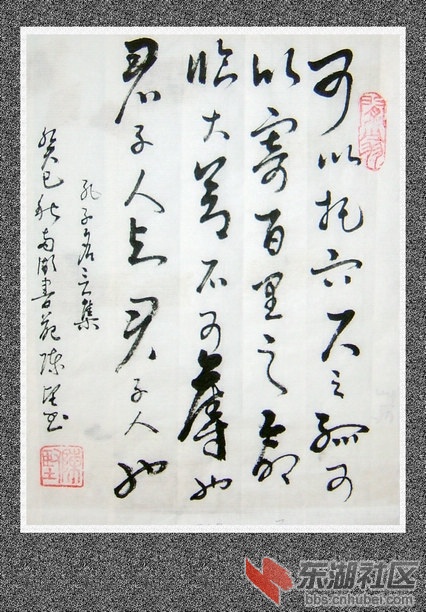 可以托六尺之孤可
以寄百里之命
临大节不可夺也
君子人与君子人也
孔子名言集
癸巳秋南湖書苑陈坚书
东湖社区
bbs.cnhubei.com